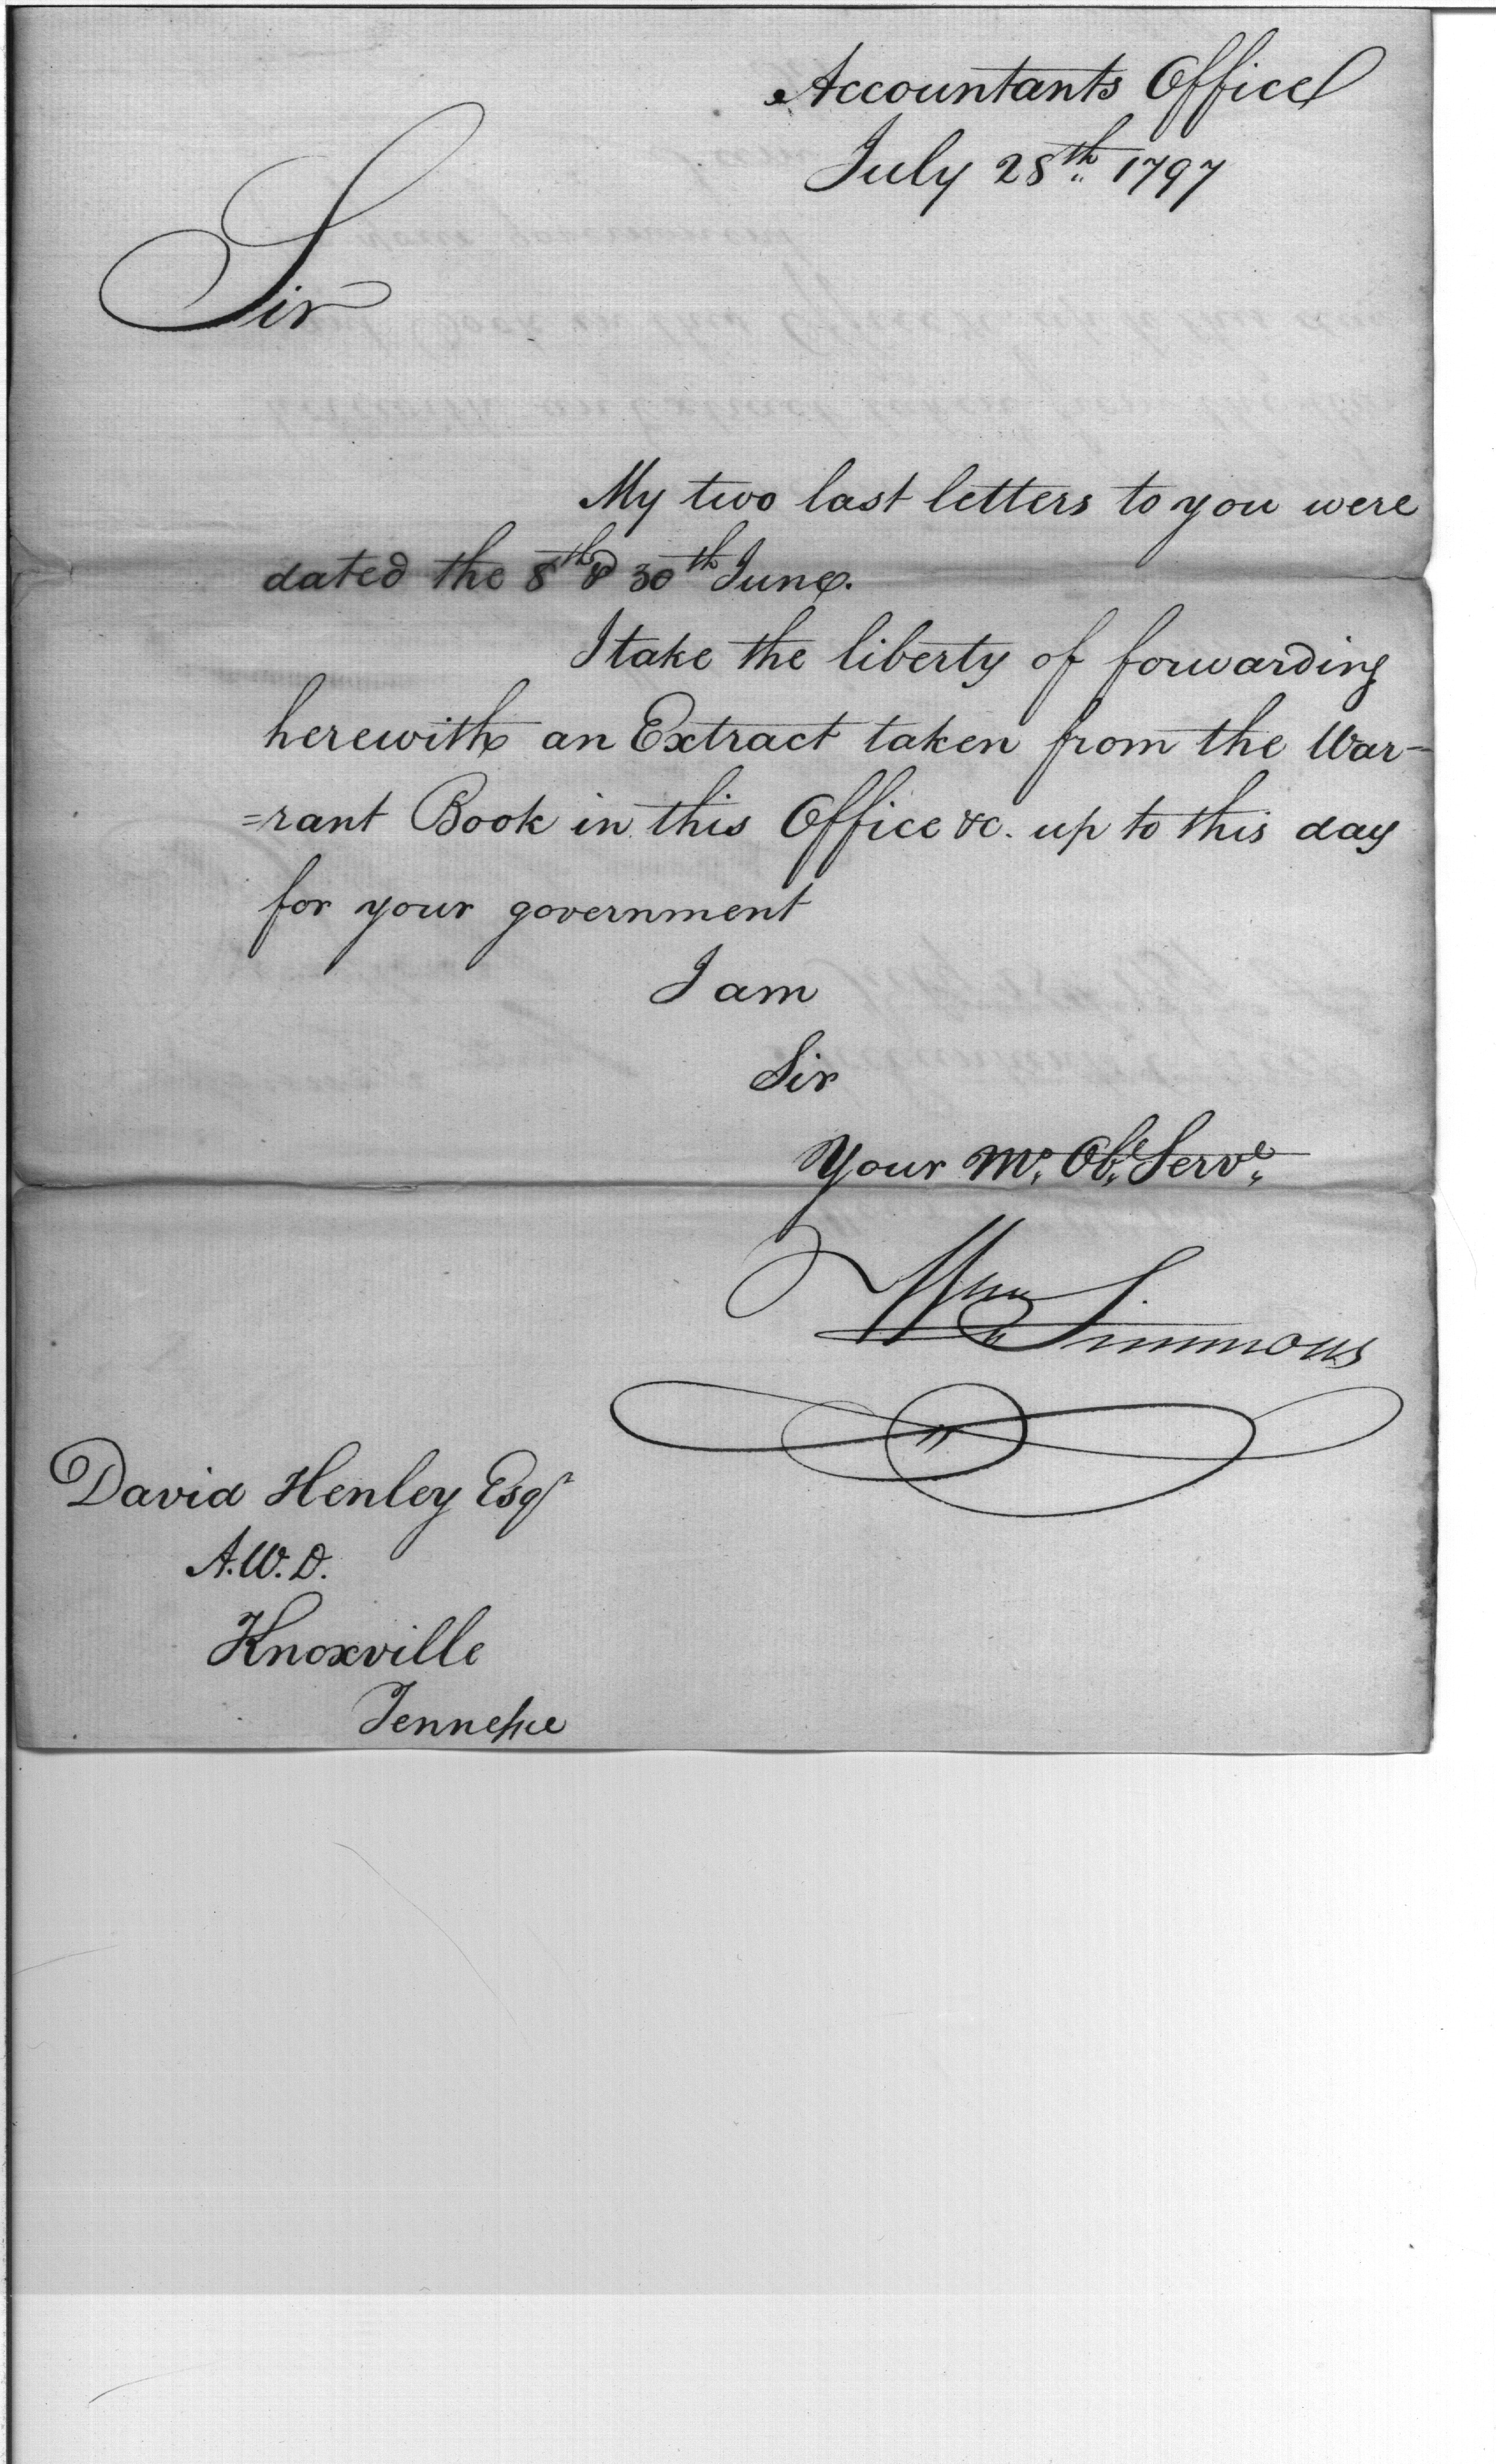 Accountants Office
July 28th 1797
Sir
My two last letters to you were
dated the 8th & 30th June.
I take the liberty of forwarding
herewith an Extract taken from the War-
=rant Book in this Office &c. up to this day
for your government
I am
Sir
Your Mo. Obe. Serve.
Wm Simmons
David Henley Esqr
A.W.D.
Knoxville
Tenneſsee